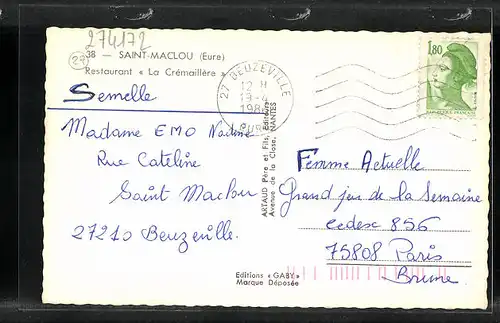 274172
27
38 — SAINT-MACLOU (Eure)
Restaurant « La Crémaillère »
Semelle
Madame EMO Nadine
Rue Cateline
Saint Maclou
27210 Beuzeville.
27 BEUZEVILLE
12 H
1986
EURE
ARTAUD Père et Fils, Éditeurs
Avenue de la Close, NANTES
Editions « GABY »
Marque Déposée
1,80
REPUBLIQUE FRANÇAISE
Femme Actuelle
Grand jeu de la Semaine
cedesc 856
75808 Paris
Brune